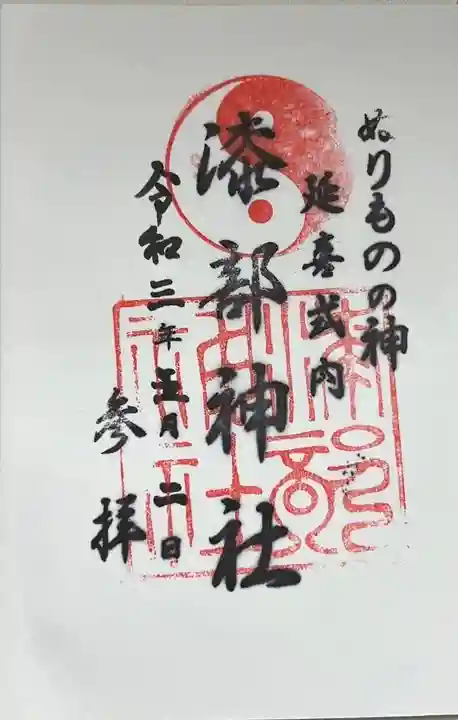 ぬりものの神
延喜式内
漆部神社
令和三年五月二日
参拝
漆部神社